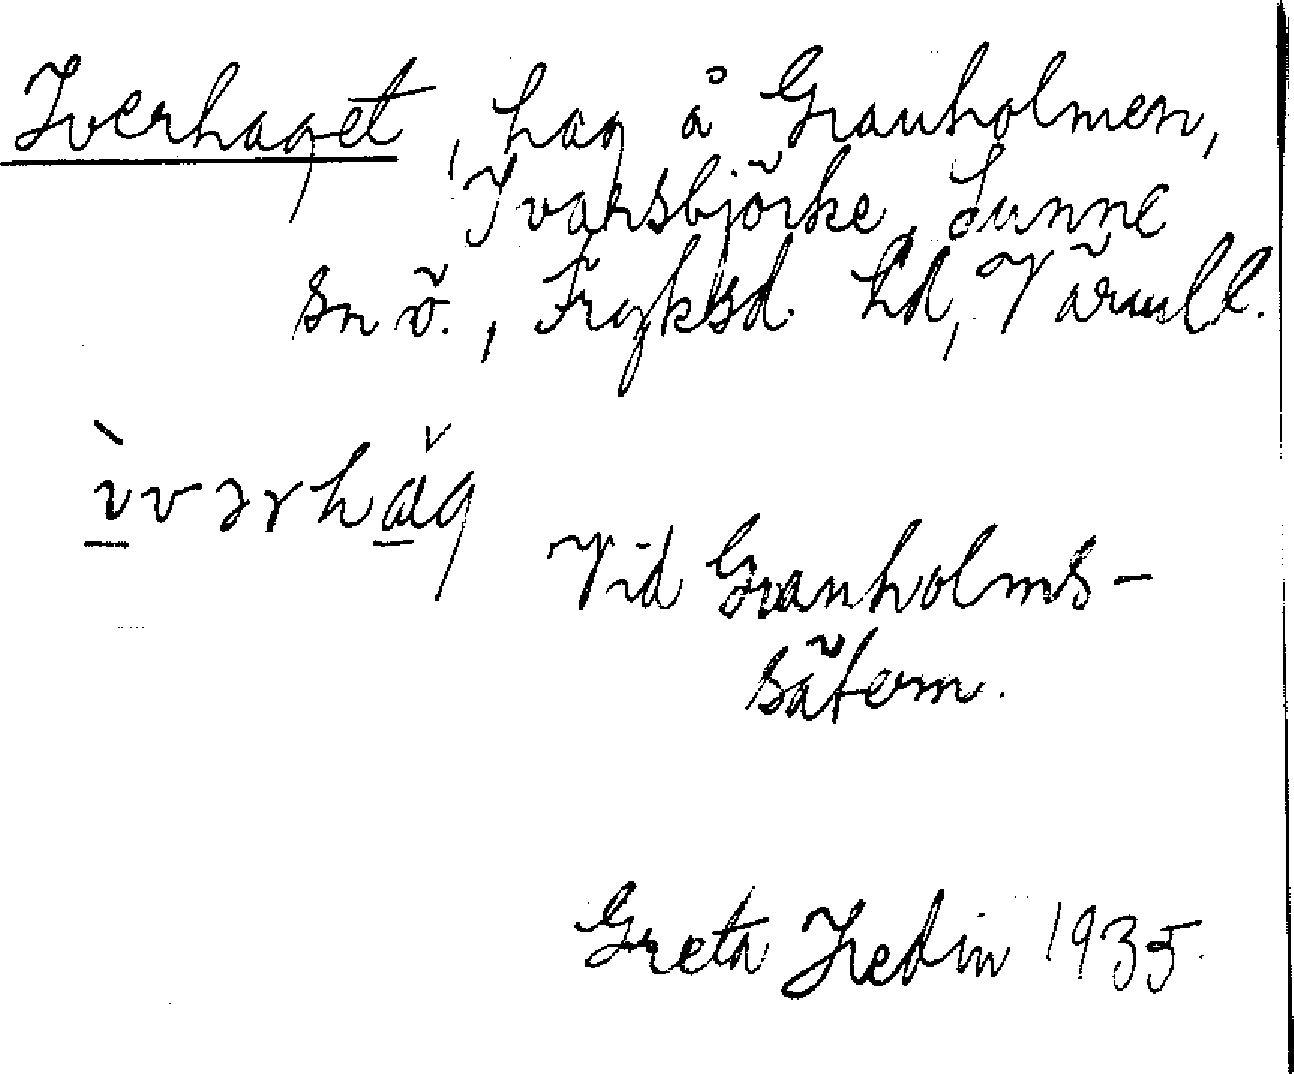 Iverhaget, hag å Granholmen,
Ivarsbjörke, Sunne
sn ö., Fryksd. hd, Värml l.
ìvərhàg
Vid Granholms-
sätern.
Greta Hedin 1935.